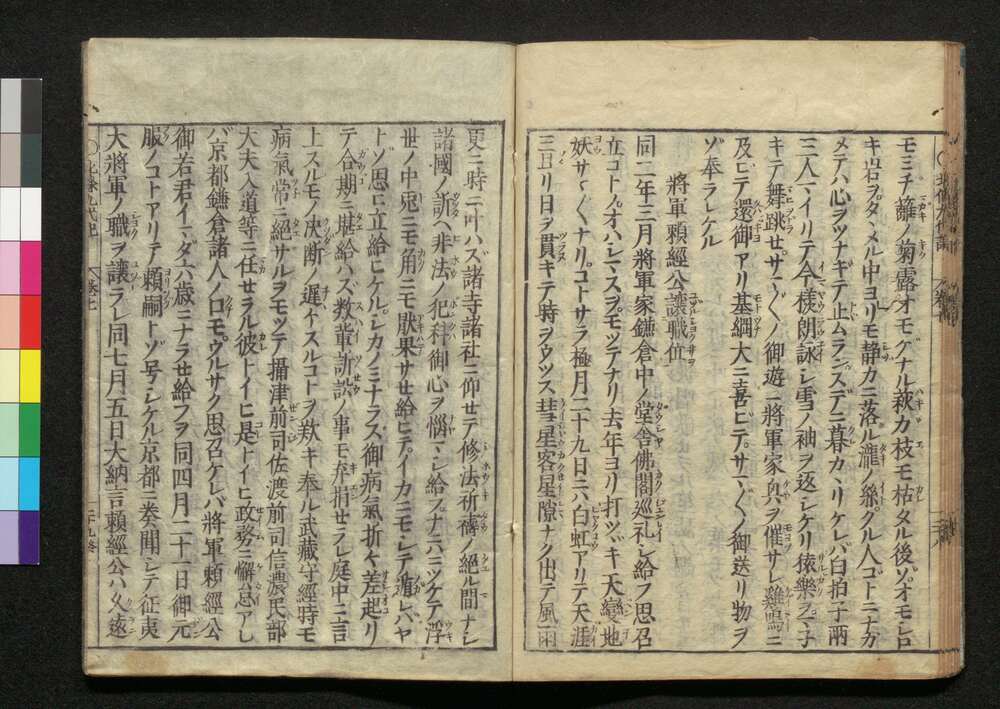 モミチ籬ノ菊露オモゲナル萩カ枝モ枯タル後ゾオモシロ
キ岩ヲタヽメル中ヨリモ静カニ落ル瀧ノ絲クル人ゴトニナカ
メテハ心ヲツナギテ止ムラン既ニ暮カヽリケレバ白拍子両
三人マイリテ今様朗詠シ雪ノ袖ヲ返シケリ猿樂ヲ
キテ舞跳サセサマ〴〵ノ御遊一將軍家興ヲ催サレ雞鳴ニ
及ビテ還御アリ基綱大ニ喜ビテサマ〴〵ノ御送リ物ヲ
ゾ奉ラレケル
將軍頼經公讓職位
同二年三月將軍家鎌倉中ノ堂舎佛閣巡礼シ給フ思召
立コトノオハシマスヲモツテナリ去年ヨリ打ツヾキ天變地
妖サマ〴〵ナリコトサラ極月二十九日ニハ白虹アリテ天涯
三日リ日ヲ貫キテ時ヲウツス彗星客星隙ナク出テ風雨
更ニ時ニ叶ハズ諸寺諸社ニ仰セテ修法祈禱ノ絶ル間ナシ
諸國ノ訴ヘ非法ノ犯科御心ヲ惱マシ給フナニニツケテ浮
世ノ中宛ニモ角ニモ厭果サセ給ヒテイカニモシテ遁レバヤ
トゾ思ヒ立給ヒケルシカノミナラス御病氣折々差起リ
テ合期ニ堪給ハズ數輩訴訟ノ事モ弃捐セラレ庭中ニ言
上スルモノ決断ノ遅々スルコトヲ歎キ奉ル武藏守經時モ
病氣常ニ絶サルヲモツテ攝津前司佐渡前司信濃民部
大夫入道等ニ任セラル彼トイヒ是トイヒ政務ニ懈怠アレ
バ京都鎌倉諸人ノ口モウルサク思召ケレバ將軍頼經公
御若君イマダ六歳ニナラセ給フヲ同四月二十一日御元
服ノコトアリテ頼嗣トゾ号シケル京都ニ奏聞シテ征夷
大將軍ノ職ヲ讓ラレ同七月五日大納言頼經公ハ久遠